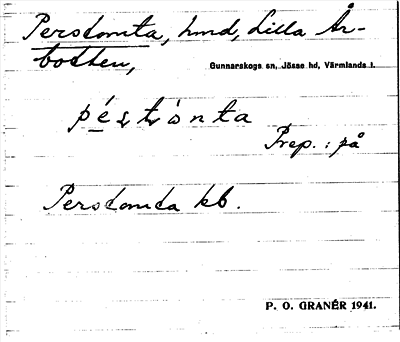 Perstomta, hmd, Lilla År-
botten,
Gunnarskogs sn, Jösse hd, Värmlands l.
Prep.: på
Perstomta kb.
P. O. GRANÉR 1941.